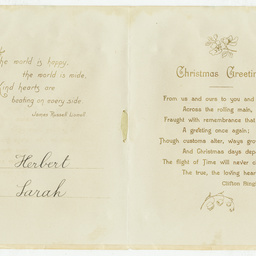 The world is happy,
the world is wide,
Kind hearts are
beating on every side.
James Russell Lowell
Herbert
Sarah
Christmas Greetin
From us and ours to you and
Across the rolling main,
Fraught with remembrance that
A greeting once again;
Though customs alter, ways grow
And Christmas days depa
The flight of Time will never
The true, the loving hear
Clifton Bing